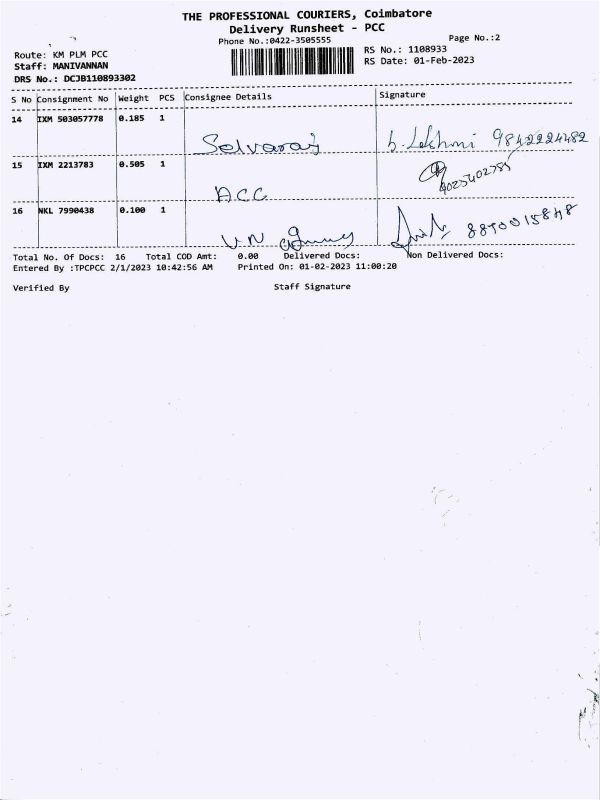 THE PROFESSIONAL COURIERS, Coimbatore
Delivery Runsheet - PCC
Phone No.:0422-3505555
Page No.:2
Route: KM PLM PCC
RS No.: 1108933
Staff: MANIVANNAN
RS Date: 01-Feb-2023
DRS No.: DCJB110893302
S No Consignment No Weight PCS Consignee Details Signature
14 IXM 503057778 0.185 1
Selvaraj b. Lekshmi 9842224482
15 IXM 2213783 0.505 1
ACC
16 NKL 7990438 0.100 1
V.N
Total No. Of Docs: 16 Total COD Amt: 0.00 Delivered Docs: Non Delivered Docs:
Entered By :TPCPCC 2/1/2023 10:42:56 AM Printed On: 01-02-2023 11:00:20
Verified By Staff Signature